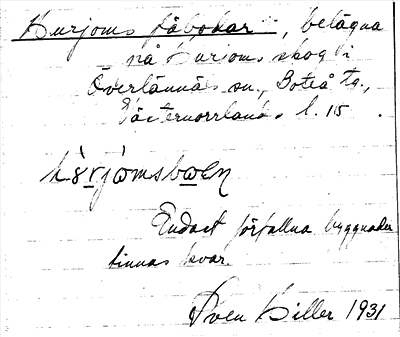 Kurjoms fäbodar, belägna
på Kurjoms skog i
Överlännäs sn., Boteå tg.,
Västernorrlands l. 15.
Endast förfallna byggnader
finnas kvar.
Sven Hiller 1931